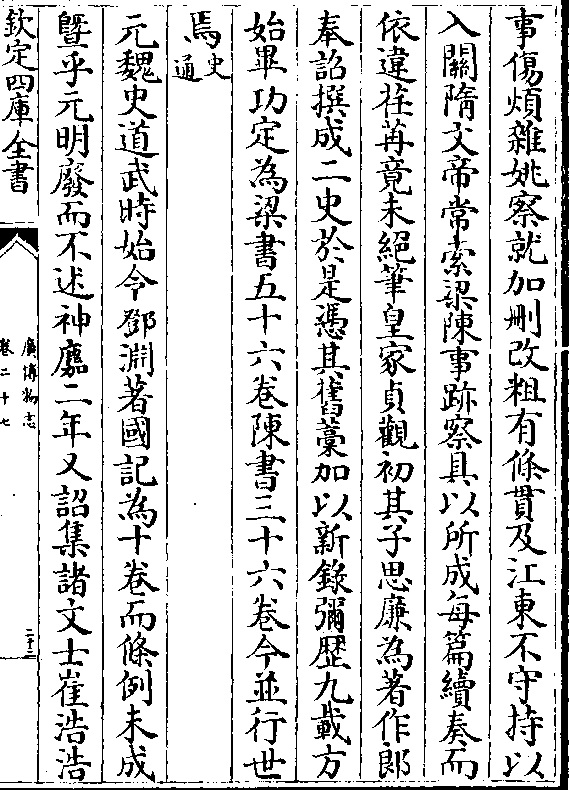 事傷煩雜姚察就加刪改粗有條貫及江東不守持以
入關隋文帝常索梁陳事跡察具以所成每篇續奏而
依違荏苒竟未絕筆皇家貞觀初其子思廉為著作郎
奉詔撰成二史於是憑其舊藁加以新錄彌歴九載方
始畢功定為梁書五十六卷陳書三十六卷今並行世
焉史通
元魏史道武時始令鄧淵著國記為十卷而條例未成
暨乎元明廢而不述神䴥二年又詔集諸文士崔浩浩
欽定四庫全書
廣博物志
卷二十七
二十二